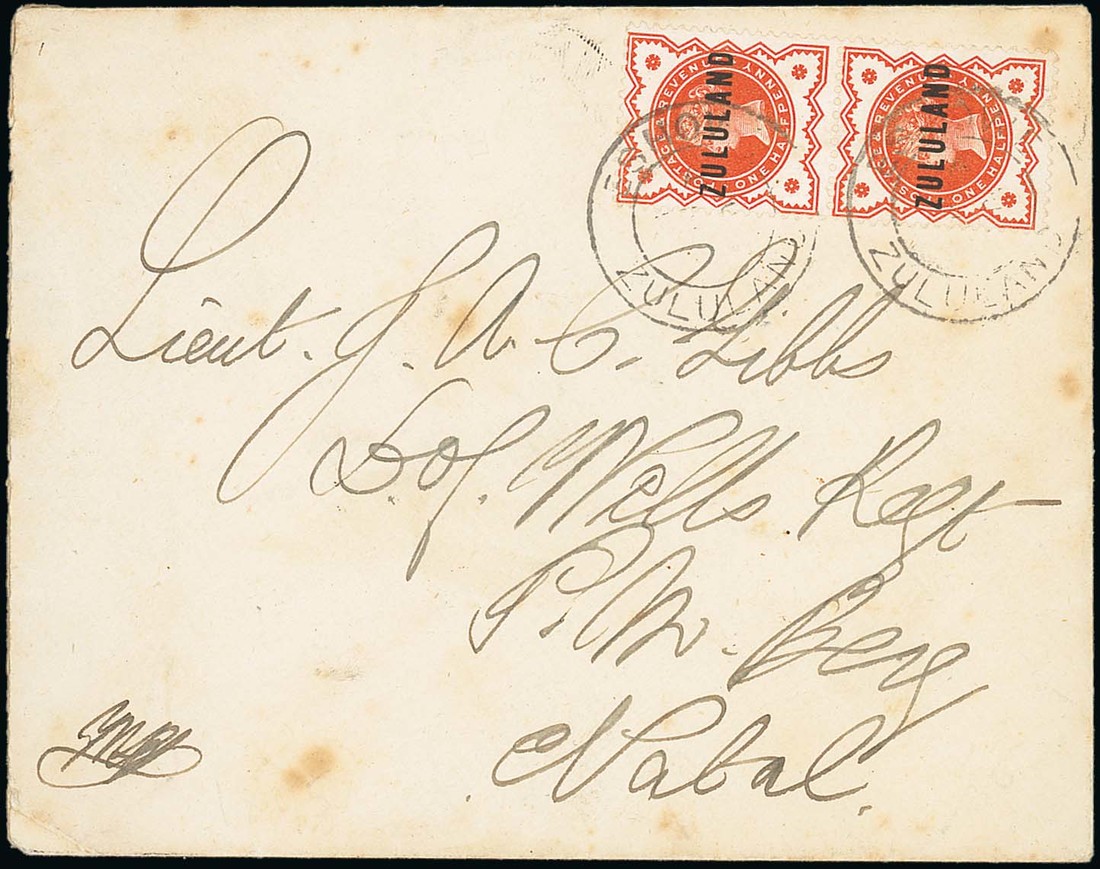 POSTAGE & REVENUE
ONE HALFPENNY
ZULULAND
POSTAGE & REVENUE
ONE HALFPENNY
ZULULAND
ZULULAND
ZULULAND
Lieut. J. A. C. Gibbs
D. of. Wells Regt
P. M. Berg
Natal.